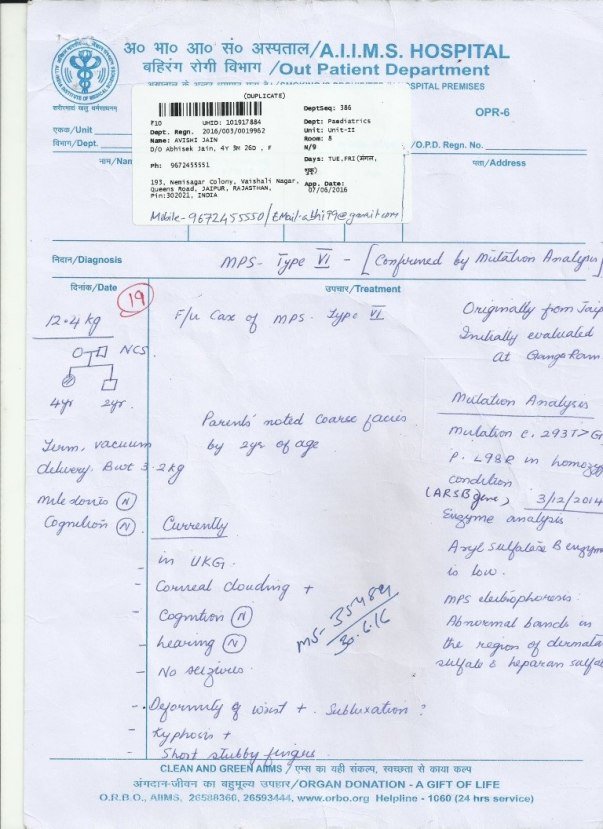 अ० भा० आ० सं० अस्पताल/A.I.I.M.S. HOSPITAL
बहिरंग रोगी विभाग /Out Patient Department
HOSPITAL PREMISES
OPR-6
शरीरमाद्यं खलु धर्मसाधनम्
एकक/Unit
विभाग/Dept.
नाम/Nam
(DUPLICATE)
₹10 UHID: 101917884
Dept. Regn. 2016/003/0019962
Name: AVISHI JAIN
D/O Abhisek Jain, 4Y 3M 26D , F
Ph: 9672455551
193, Nemisagar Colony, Vaishali Nagar,
Queens Road, JAIPUR, RAJASTHAN,
Pin:302021, INDIA
DeptSeq: 386
Dept: Paediatrics
Unit: Unit-II
Room: 8
N/9
Days: TUE,FRI (मंगल,
शुक्र)
App. Date:
07/06/2016
Mobile-9672455550/EMail-abhi79@gmail.com
/O.P.D. Regn. No.
पता/Address
निदान/Diagnosis
MPS- Type VI - [Confirmed by Mutation Analysis]
दिनांक/Date
उपचार/Treatment
19
12.4 kg
NCS
4yr 2yr.
Term, vacuum
delivery. Bwt 3.2kg
milestones N
Cognition N
F/u Case of MPS. Type VI
Parents' noted coarse facies
by 2yr of age
Currently
- in UKG.
- Corneal clouding +
- Cognition N
- hearing N
- No seizures.
- Deformity of wrist +. Subluxation ?
- Kyphosis +
- Short stubby fingers.
MS- 35489
30.6.16
Originally from Jaip
Initially evaluated
at Ganga Ram
Mutation Analysis
Mutation c. 293T>G
p. L98R in homozy
condition
(ARSB gene) 3/12/2014
Enzyme analysis
Aryl sulfatase B enzym
is low.
MPS electrophoresis:
Abnormal bands in
the region of dermata
sulfate & heparan sulfat
CLEAN AND GREEN AIIMS / एम्स का यही संकल्प, स्वच्छता से काया कल्प
अंगदान-जीवन का बहुमूल्य उपहार/ORGAN DONATION - A GIFT OF LIFE
O.R.B.O., AIIMS, 26588360, 26593444, www.orbo.org Helpline - 1060 (24 hrs service)